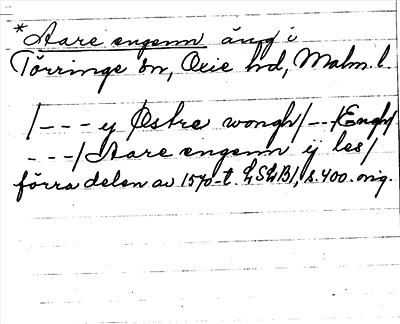 *Aare engenn äng i
Törringe sn, Oxie hd, Malm. l.
/--- y Østre wongh/--/Engh/
---/Aare engenn ij les/
förra delen av 1570-t. LSLB1, s. 400. orig.